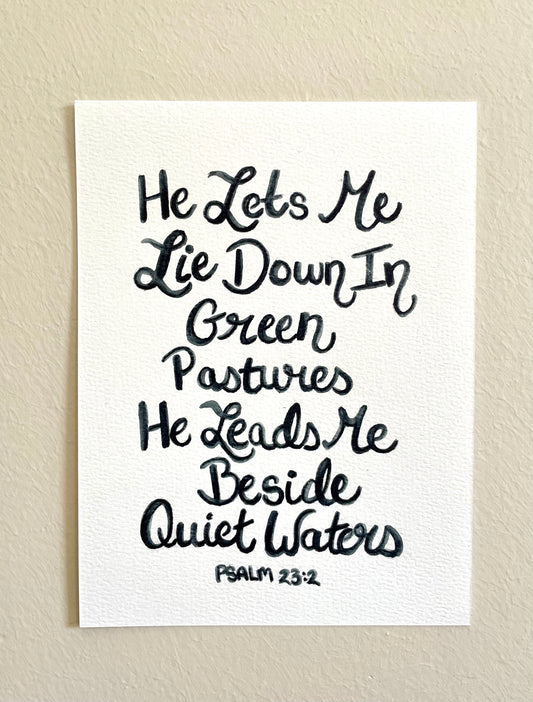 He Lets Me
Lie Down In
Green
Pastures
He Leads Me
Beside
Quiet Waters
PSALM 23:2